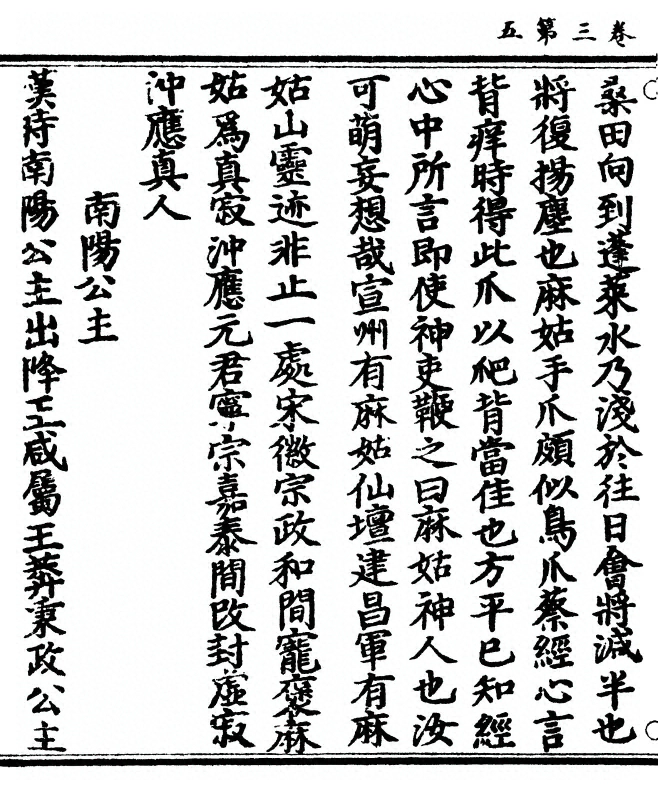 卷三第五
桑田向到蓬萊水乃淺於往日會將減半也
將復揚塵也麻姑手爪頗似鳥爪蔡經心言
背痒時得此爪以爬背當佳也方平已知經
心中所言即使神吏鞭之曰麻姑神人也汝
可萌妄想哉宣州有麻姑仙壇建昌軍有麻
姑山靈迹非止一處宋徽宗政和間寵褒麻
姑爲真寂沖應元君寧宗嘉泰間改封虛寂
沖應真人
南陽公主
漢時南陽公主出降王咸屬王莽秉政公主